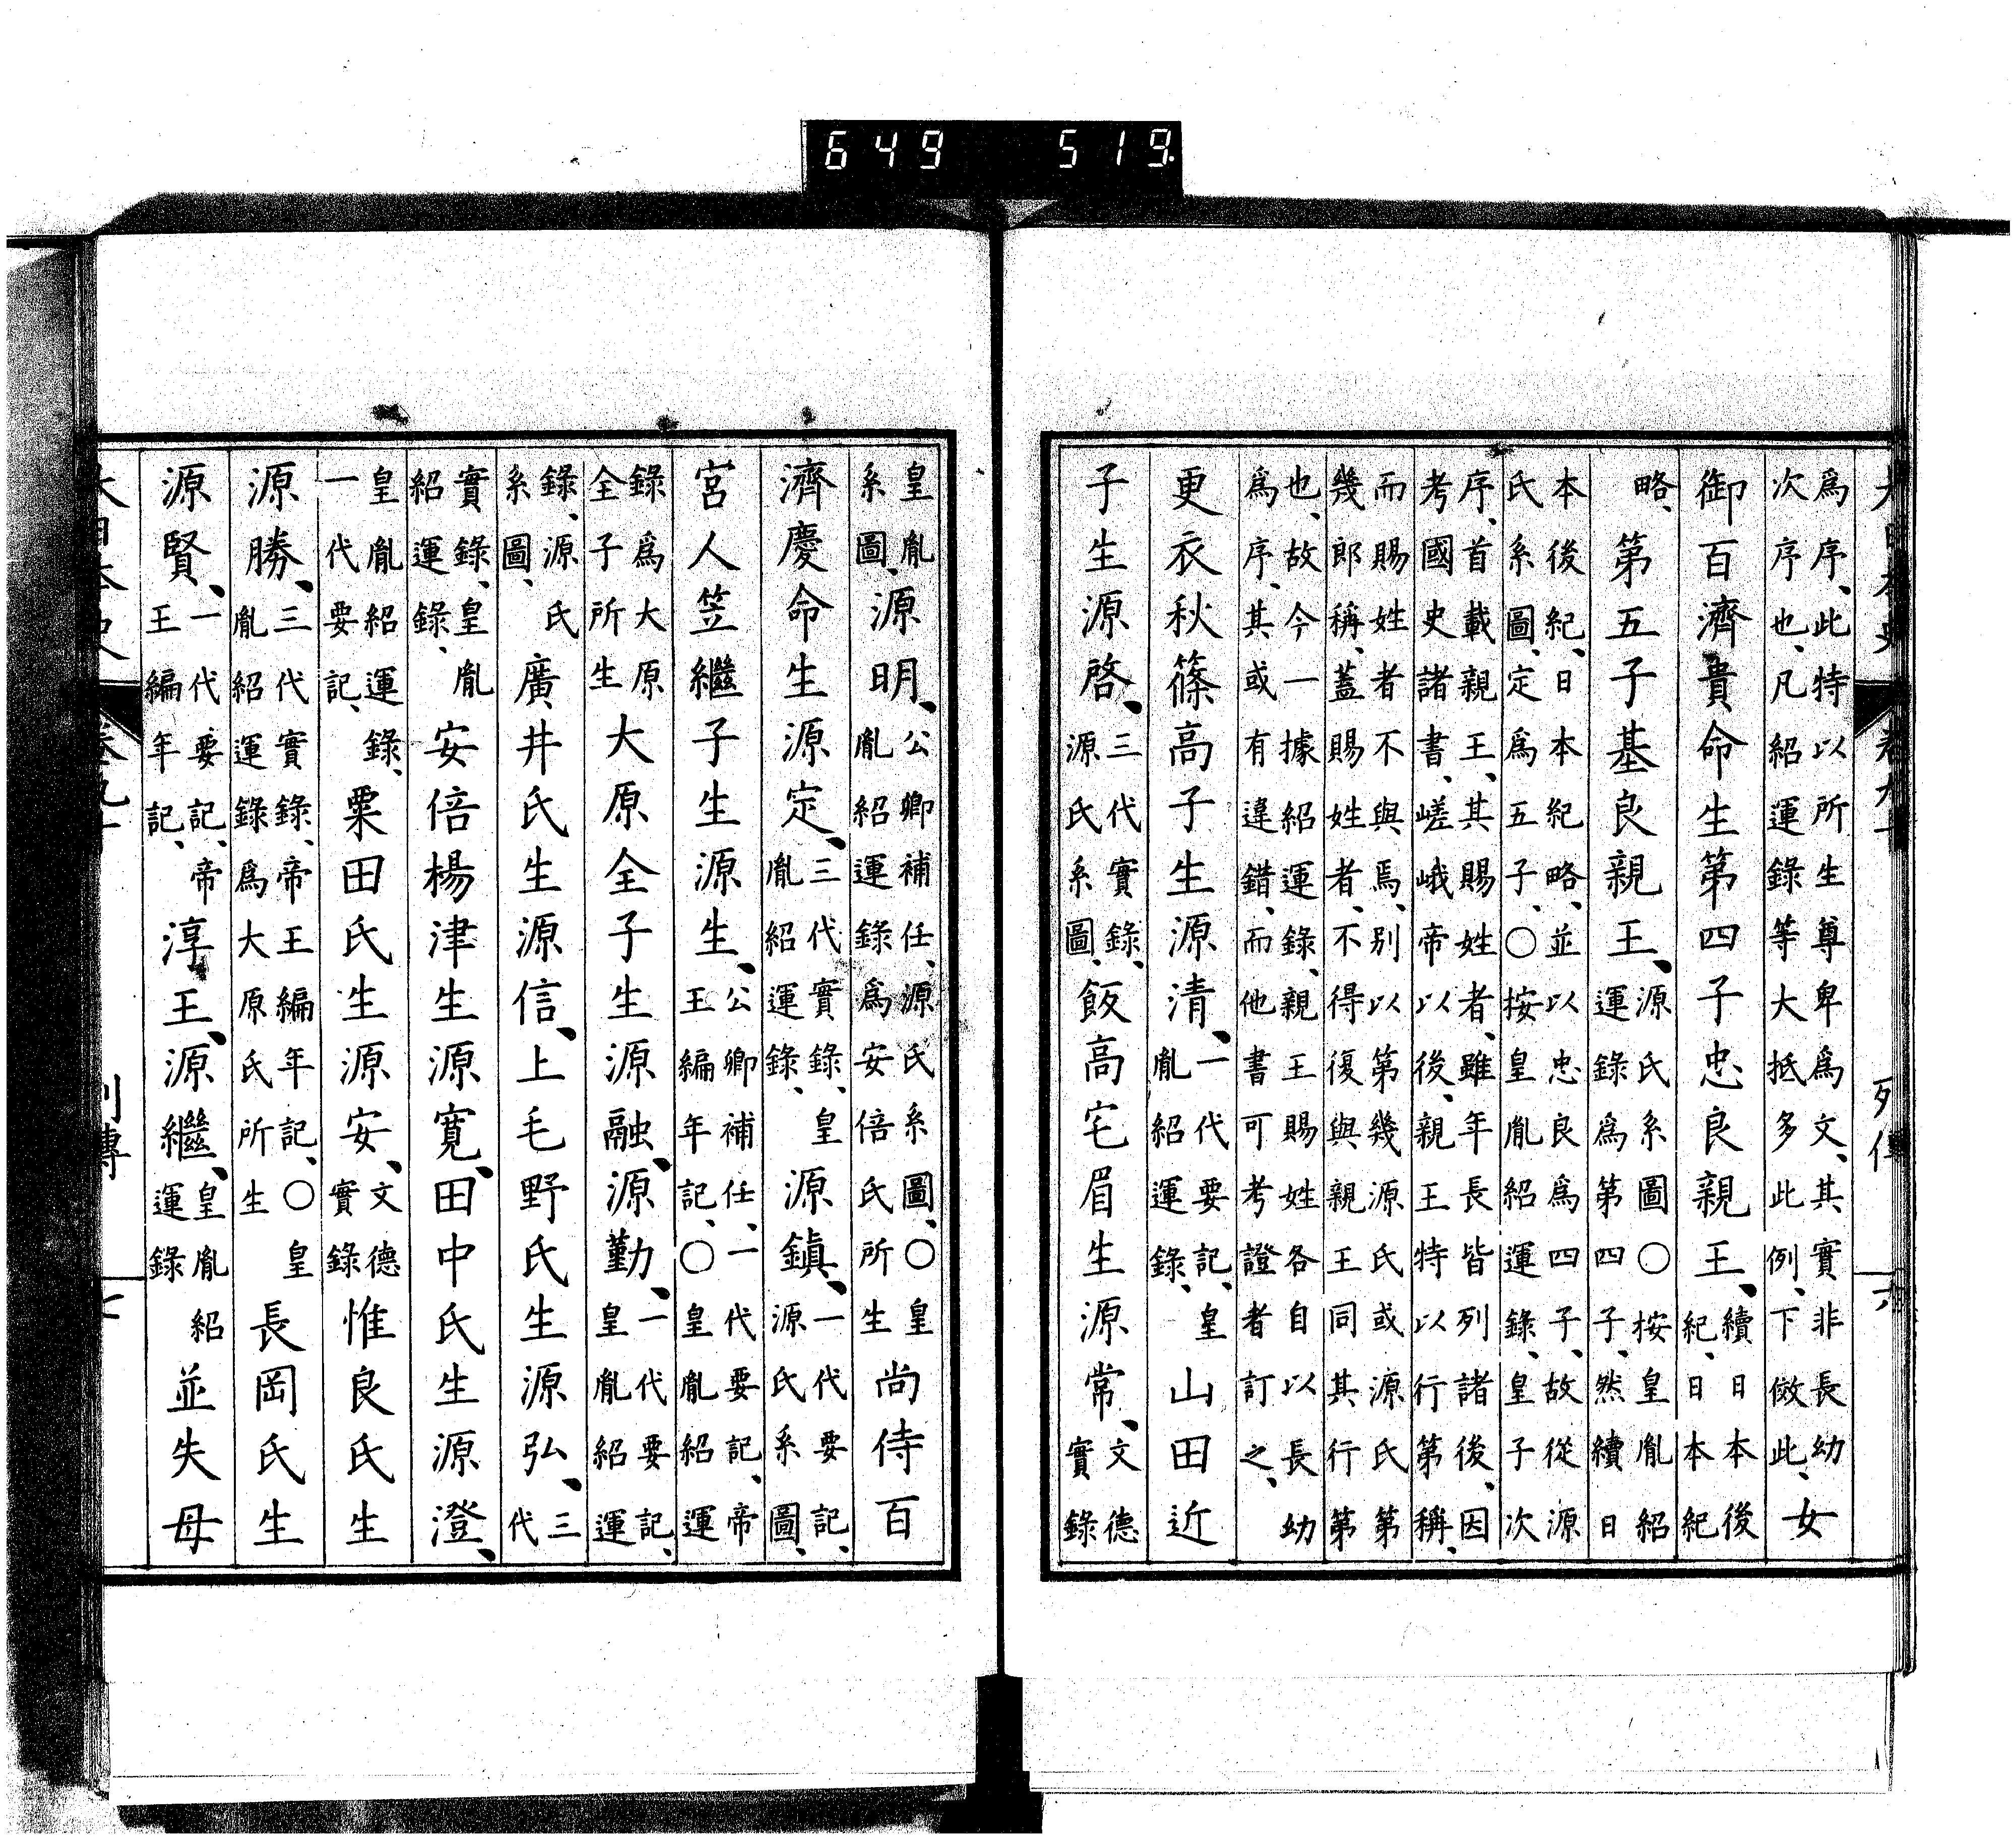 大日本史 卷九十 列傳 六
爲序、此特以所生尊卑爲文、其實非長幼次序也、凡紹運錄等大抵多此例、下倣此、女
御百濟貴命生第四子忠良親王、續日本後紀、日本紀
略、第五子基良親王、源氏系圖〇按皇胤紹運錄爲第四子、然續日
本後紀、日本紀略、並以忠良爲四子、故從源氏系圖、定爲五子、〇按皇胤紹運錄、皇子次
序、首載親王、其賜姓者、雖年長皆列諸後、因考國史諸書、嵯峨帝以後、親王特以行第稱、
而賜姓者不與焉、別以第幾源氏或源氏第幾郎稱、蓋賜姓者、不得復與親王同其行第
也、故今一據紹運錄、親王賜姓各自以長幼爲序、其或有違錯、而他書可考證者訂之、
更衣秋篠高子生源清、一代要記、皇胤紹運錄、山田近
子生源啓、三代實錄、源氏系圖、飯高宅眉生源常、文德實錄
皇胤系圖、源明、公卿補任、源氏系圖、〇皇胤紹運錄爲安倍氏所生尚侍百
濟慶命生源定、三代實錄、皇胤紹運錄、源鎮、一代要記、源氏系圖、
宮人笠繼子生源生、公卿補任、一代要記、帝王編年記、〇皇胤紹運
錄爲大原全子所生大原全子生源融、源勤、一代要記、皇胤紹運
錄、源氏系圖、廣井氏生源信、上毛野氏生源弘、三代
實錄、皇胤紹運錄、安倍楊津生源寬、田中氏生源澄、
皇胤紹運錄、一代要記、粟田氏生源安、文德實錄惟良氏生
源勝、三代實錄、帝王編年記、〇皇胤紹運錄爲大原氏所生長岡氏生
源賢、一代要記、帝王編年記、淳王、源繼、皇胤紹運錄並失母
大日本史 卷九十 列傳 七
649 519